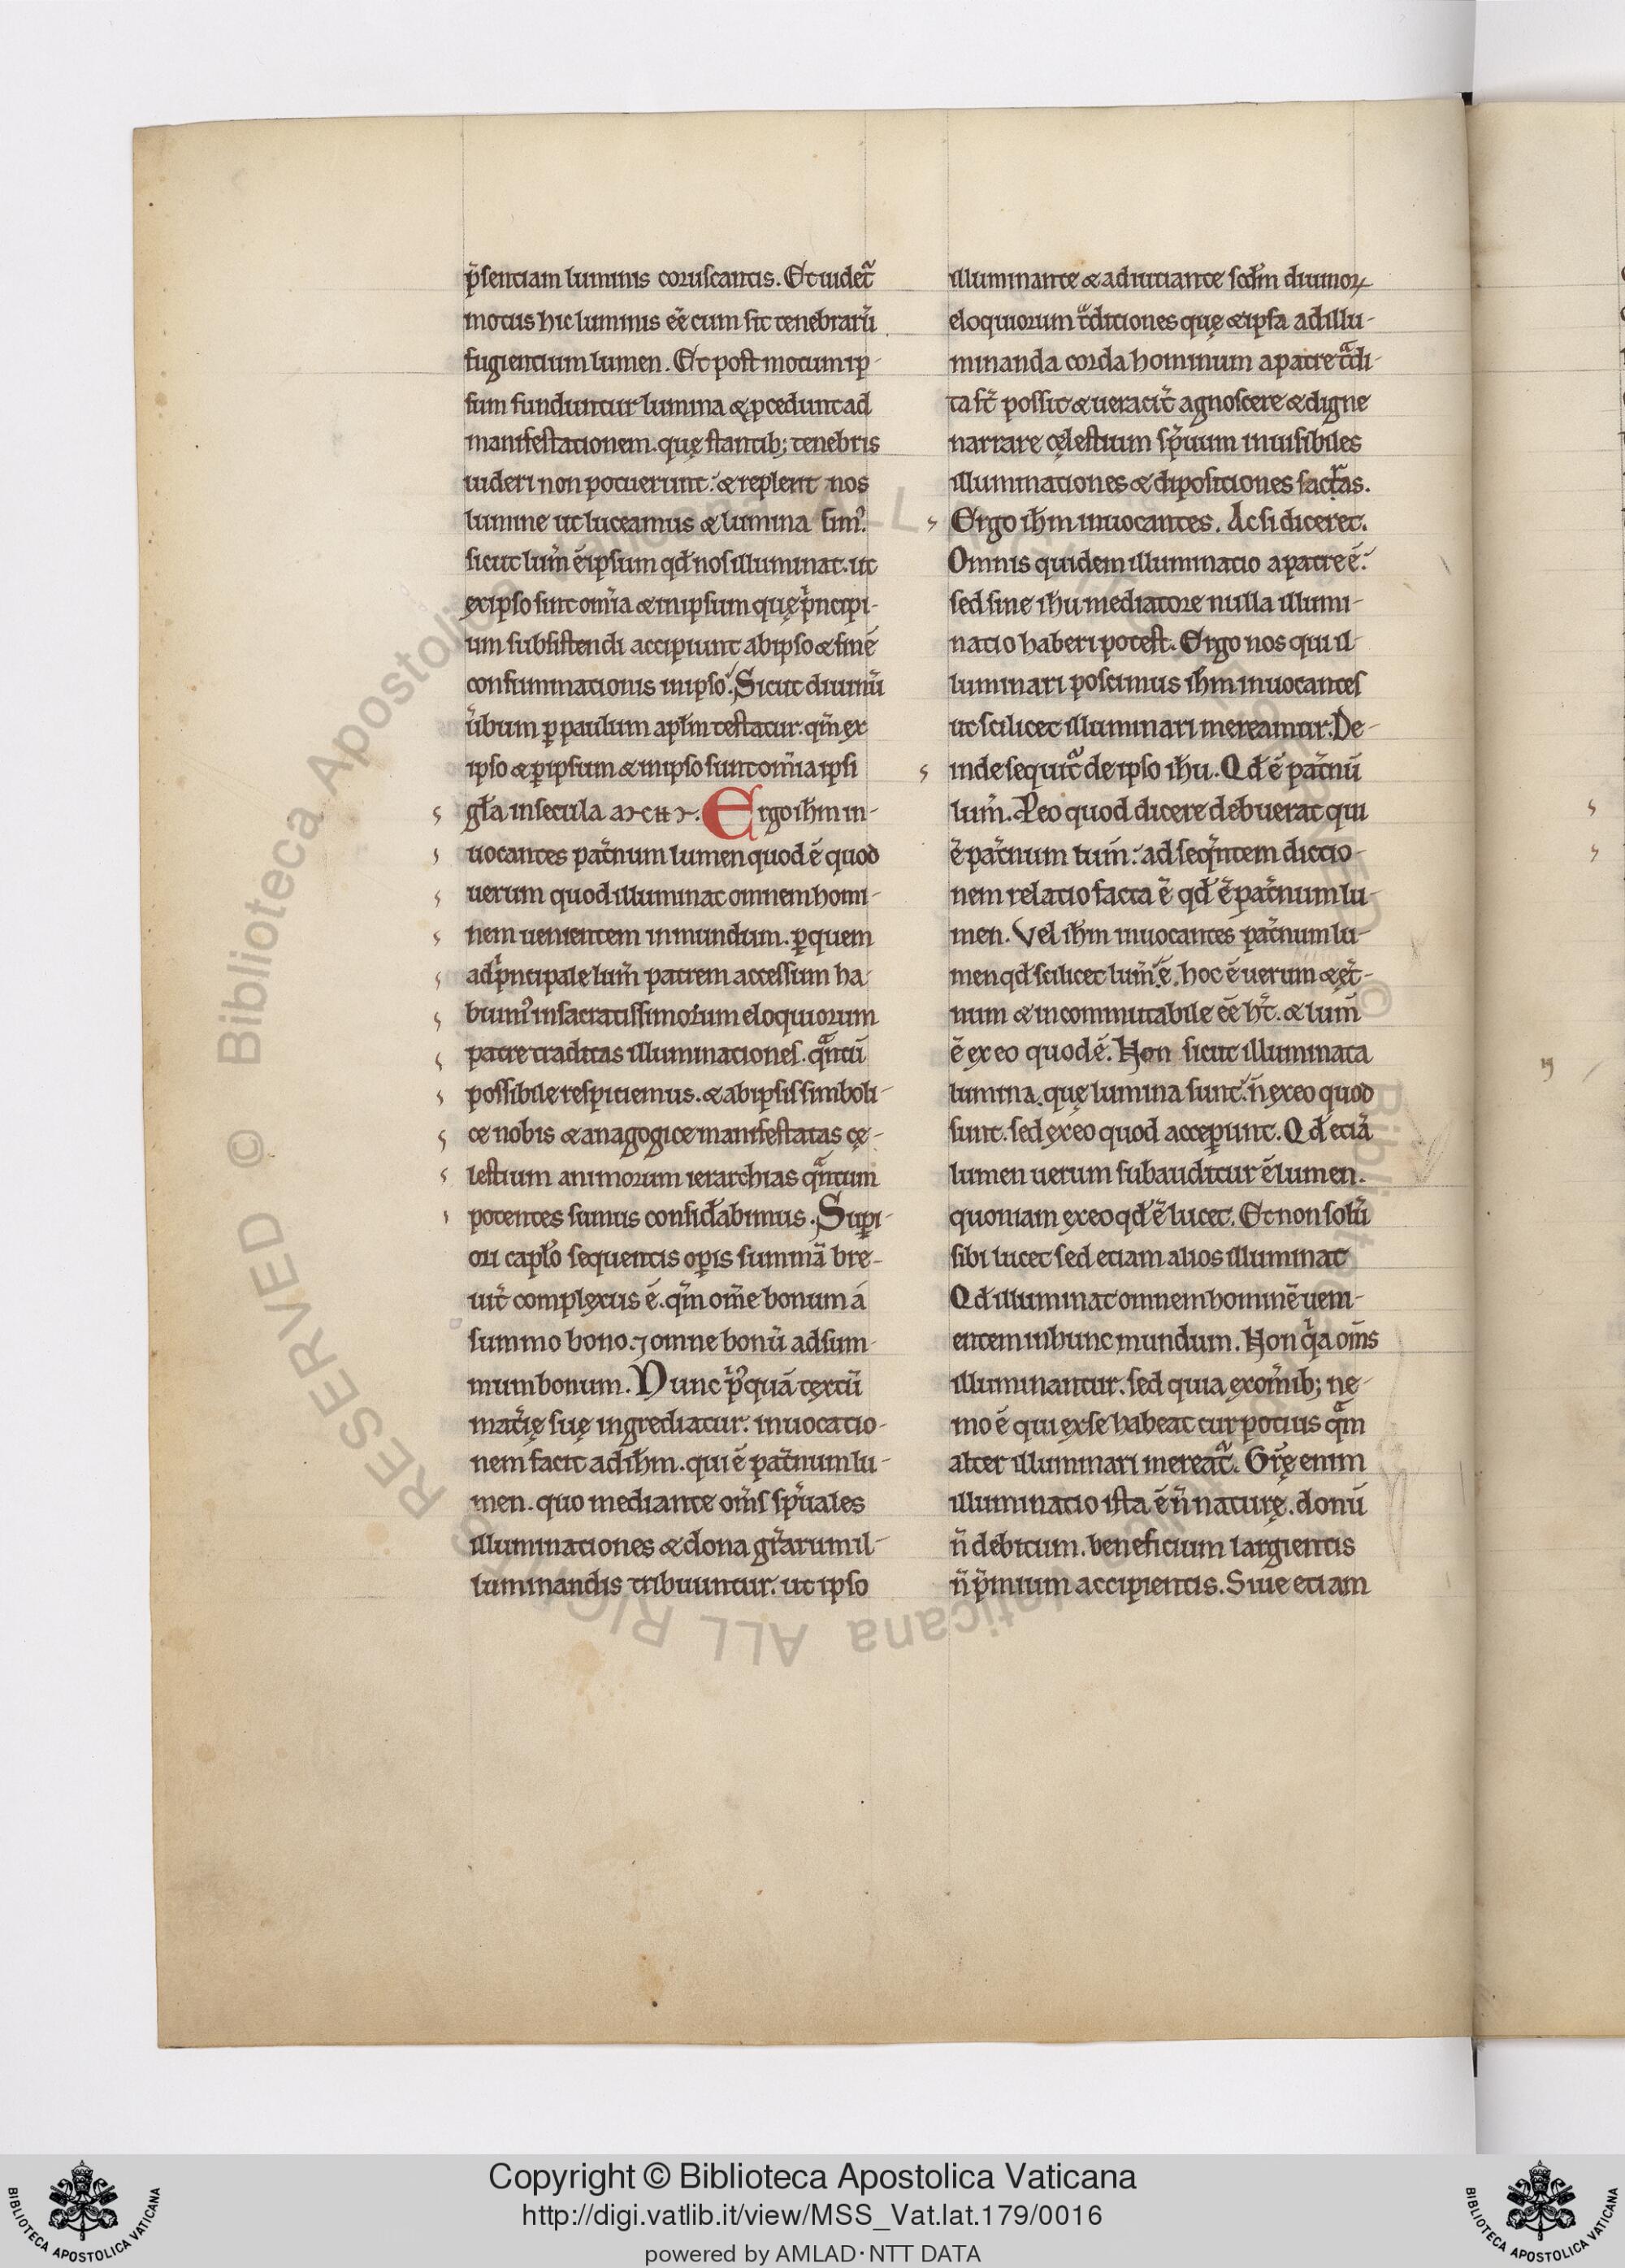 p̃sentiam luminis coruscantis. Et uidet᷑
motus hic luminis eẽ cum sic tenebrarũ
fugientium lumen. Et post motum ip-
sum funduntur lumina & ꝓcedunt ad
manifestationem. quę stantib; tenebris
uideri non potuerunt. & replent nos
lumine ut luceamus & lumina simꝰ.
sicut lum̃ ẽ ipsum qđ nos illuminat. ut
ex ipso sint om̃ia & in ipsum quę p̃ncipi-
um subsistendi accipiunt ab ipso & finẽ
consummationis in ipso. Sicut diuinũ
ũbum ꝑ paulum apłm testatur. qm̃ ex
ipso & ꝑ ipsum & in ipso sunt om̃ia ipsi
gła in secula amen. Ergo ihm̃ in-
uocantes pat̃num lumen quod ẽ quod
uerum quod illuminat omnem homi-
nem uenientem in mundum. ꝑ quem
ad p̃ncipale lum̃ patrem accessum ha-
buimꝰ in sacratissimorum eloquiorum
patre traditas illuminationes. qᷓntũ
possibile respiciemus. & ab ipsis simboli-
ce nobis & anagogice manifestatas cę-
lestium animorum ierarchias qᷓntum
potentes sumus considãbimus. Supi̱-
ori capło sequentis opis̱ summã bre-
uit̃ complexus ẽ. qm̃ om̃e bonum á
summo bono. ⁊ omne bonũ ad sum-
mum bonum. Nunc p̃ꝰquã textũ
mat̃ię suę ingrediatur. inuocatio-
nem facit ad ihm̃. qui ẽ pat̃num lu-
men. quo mediante om̃s sp̃uales
illuminationes & dona gr̃arum il-
luminandis tribuuntur. ut ipso
illuminante & adiuuante scd̃m diuinoꝝ
eloquiorum t̃ditiones quę & ipsa ad illu-
minanda corda hominum a patre t̃di-
ta st̃ possit & ueracit̃ agnoscere & digne
narrare cęlestium sp̃uum inuisibiles
illuminationes & dipositiones sacr̃as.
Ergo ihm̃ inuocantes. Ac si diceret.
Omnis quidem illuminatio a patre ẽ.
sed sine ihu mediatore nulla illumi-
natio haberi potest. Ergo nos qui il-
luminari poscimus ihm̃ inuocantes
ut scilicet illuminari mereamur. De-
inde sequit᷑ de ipso ihu. Qđ ẽ pat̃nũ
lum̃. P eo quod dicere debuerat qui
ẽ pat̃num lum̃. ad seq̃ntem dictio-
nem relatio facta ẽ qđ ẽ pat̃num lu-
men. Vel ihm̃ inuocantes pat̃num lu-
men qđ scilicet lum̃ ẽ. hoc ẽ uerum & ęt̃-
num & incommutabile eẽ ht̃. & lum̃
ẽ ex eo quod ẽ. Non sicut illuminata
lumina. quę lumina sunt. ñ ex eo quod
sunt. sed ex eo quod accepunt. Qđ etiã
lumen uerum subauditur ẽ lumen.
quoniam ex eo qđ ẽ lucet. Et non solũ
sibi lucet sed etiam alios illuminat
Qđ illuminat omnem hominẽ ueni-
entem in hunc mundum. Non q̃a om̃s
illuminantur. sed quia ex om̃ib; ne-
mo ẽ qui ex se habeat cur potius qᷓm
alter illuminari mereat᷑. Gr̃ę enim
illuminatio ista ẽ ñ naturę. donũ
ñ debitum. beneficium largientis
ñ p̃mium accipientis. Siue etiam
Copyright © Biblioteca Apostolica Vaticana
http://digi.vatlib.it/view/MSS_Vat.lat.179/0016
powered by AMLAD·NTT DATA
BIBLIOTECA APOSTOLICA VATICANA
BIBLIOTECA APOSTOLICA VATICANA